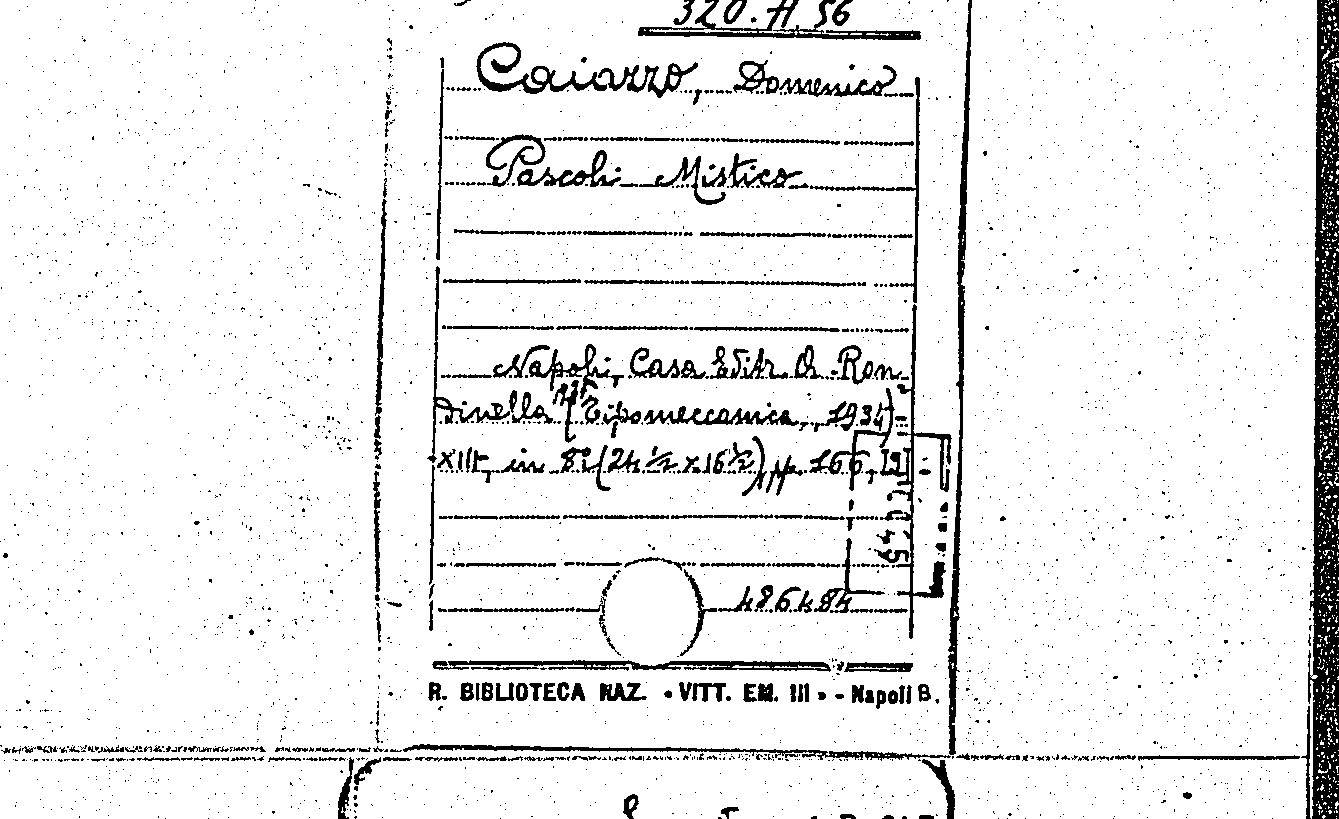 320.A.56
Caiazzo, Domenico
Pascoli Mistico.
Napoli, Casa Editr. A. Ron-
dinella (Tipomeccanica, 1934)
XIII, in 8º (24 ½ x 16 ½) pp. 166, [2]
486484
R. BIBLIOTECA NAZ. « VITT. EM. III » - Napoli B.